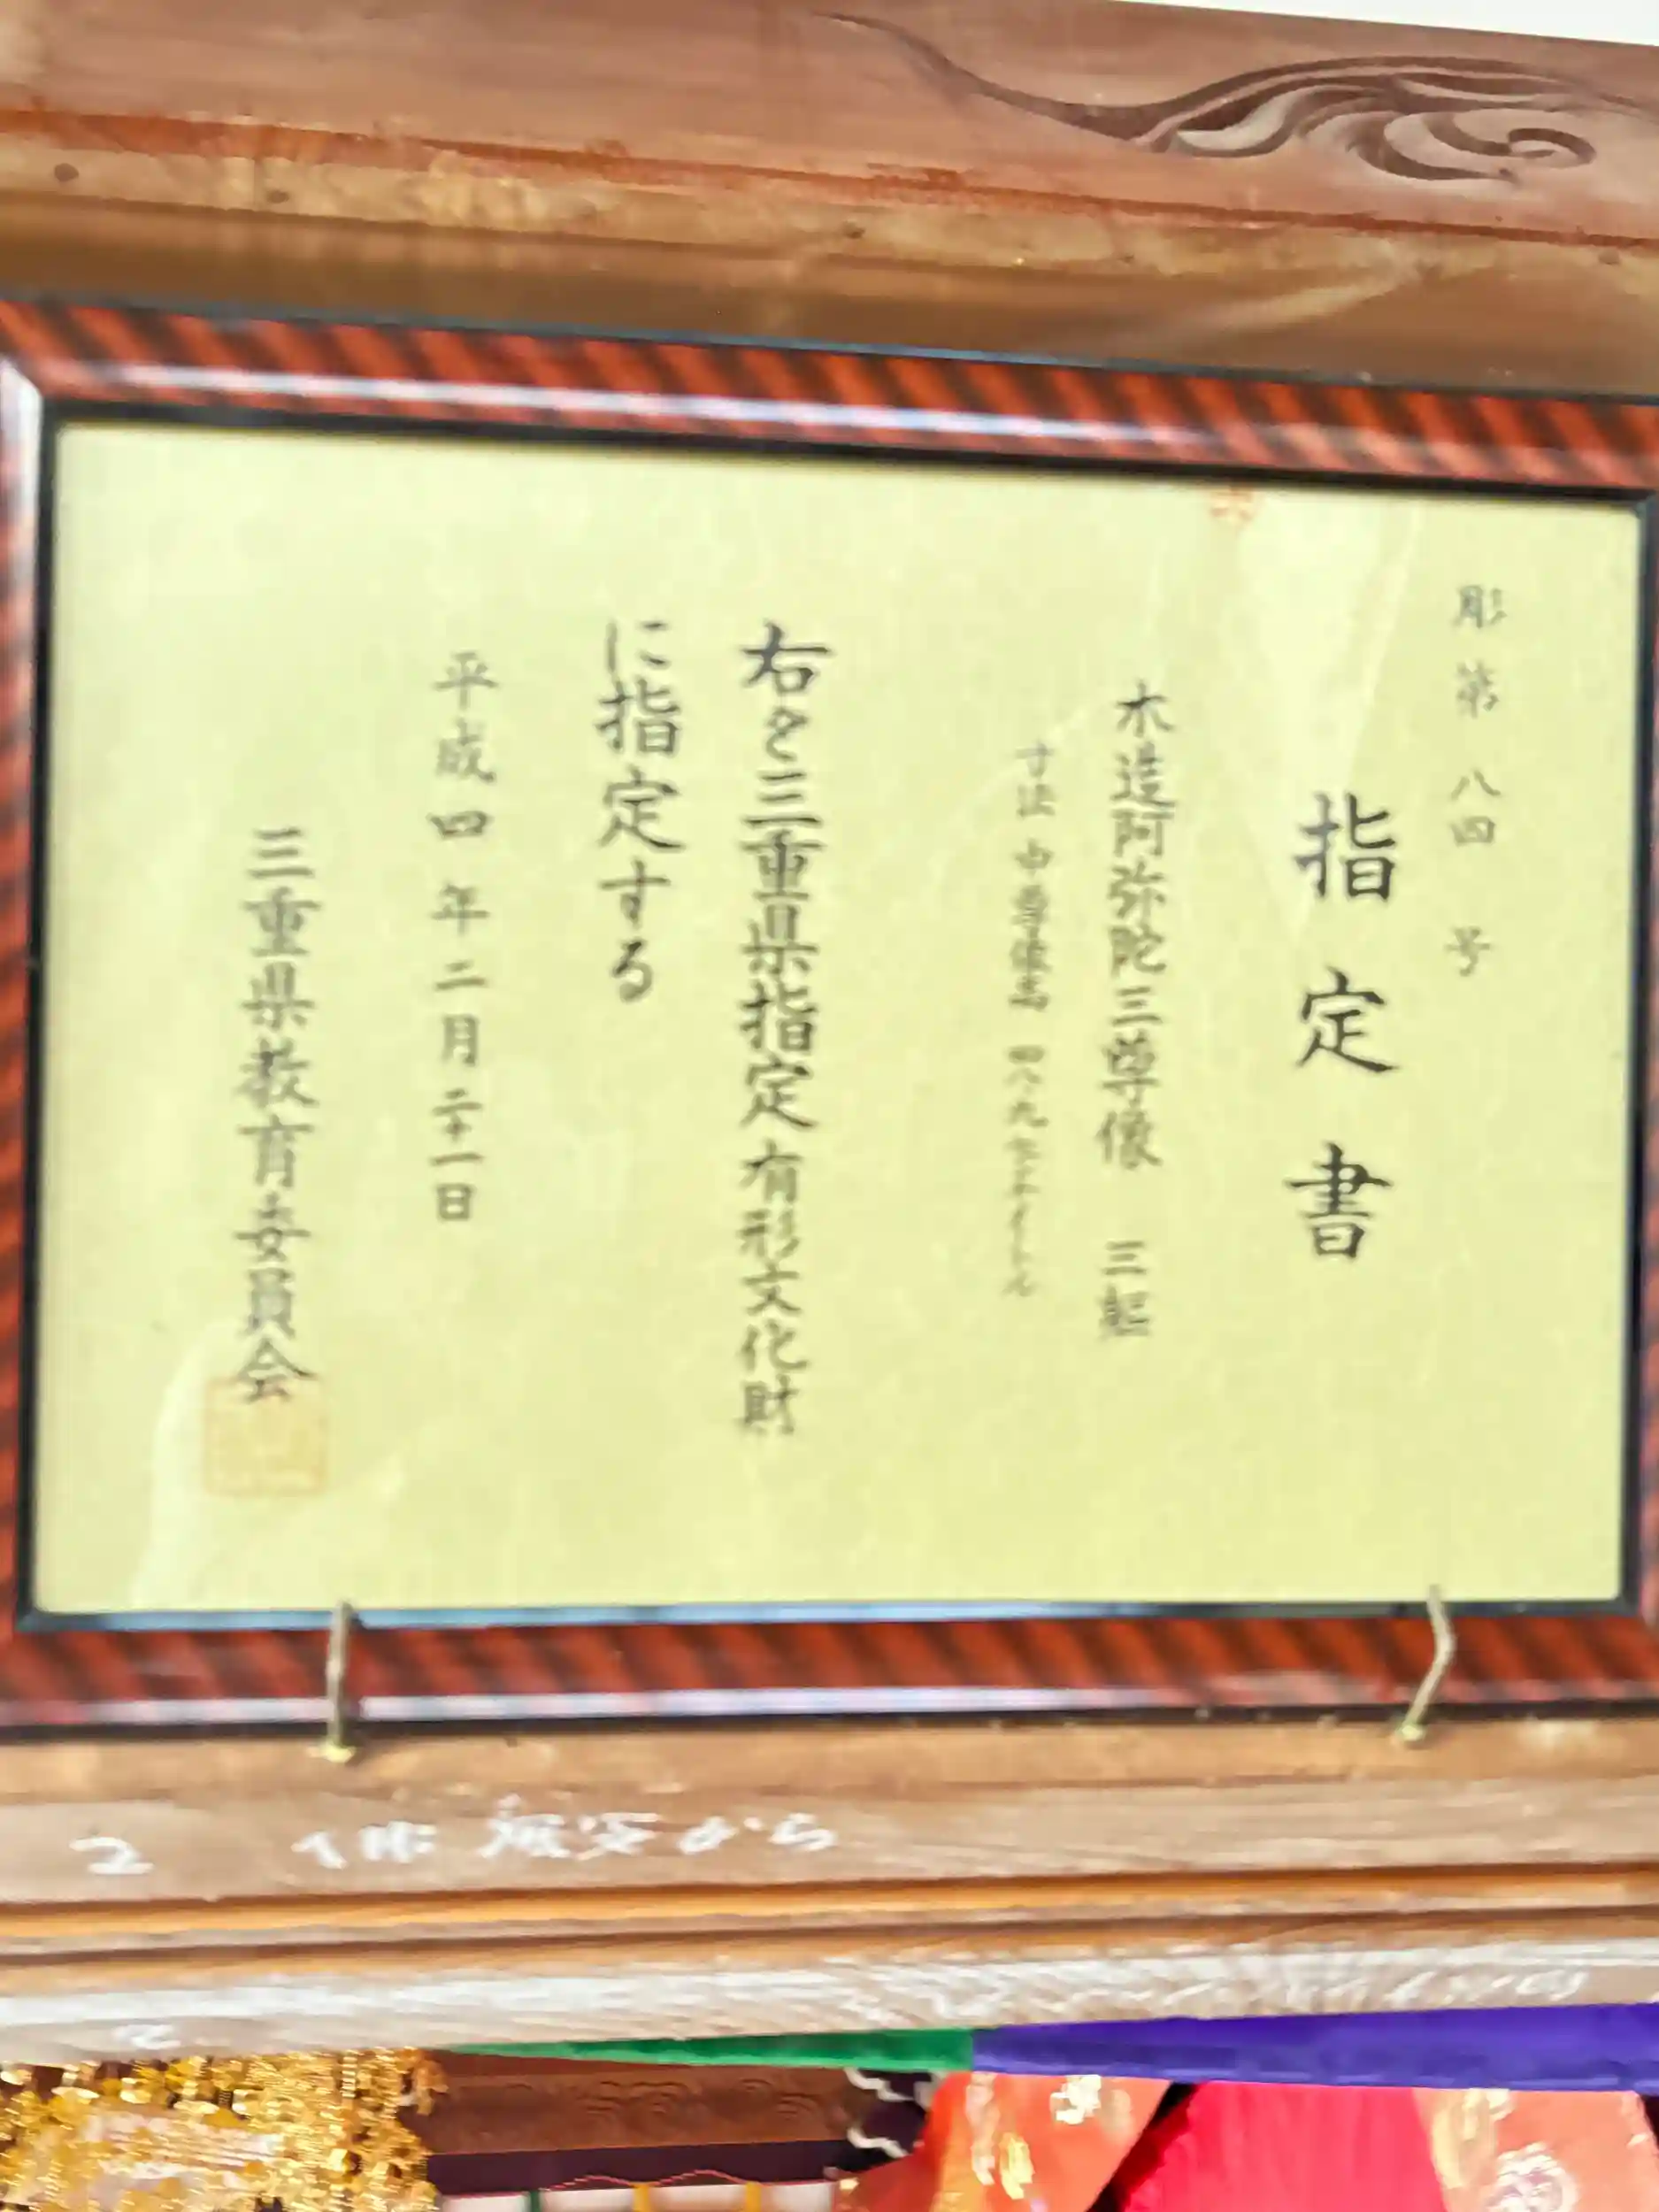 彫第八四号
指定書
木造阿弥陀三尊像 三軀
寸法 中尊像高 四八・九センチメートル
右を三重県指定有形文化財
に指定する
平成四年二月二十一日
三重県教育委員会
2
から